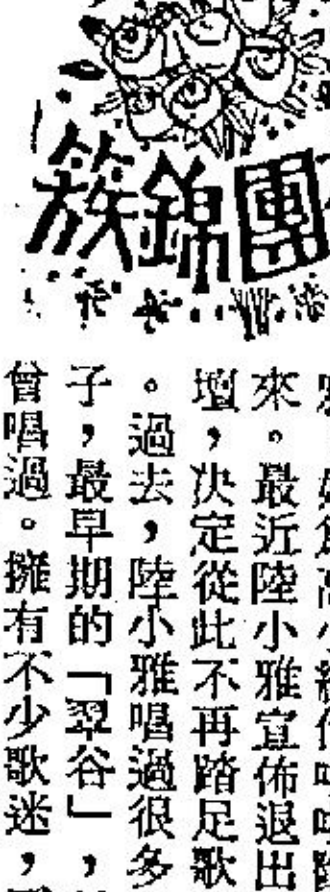 團錦簇
來。最近陸小雅宣佈退出
壇，决定從此不再踏足歌
。過去，陸小雅唱過很多
子，最早期的「翠谷」，
曾唱過。擁有不少歌迷，